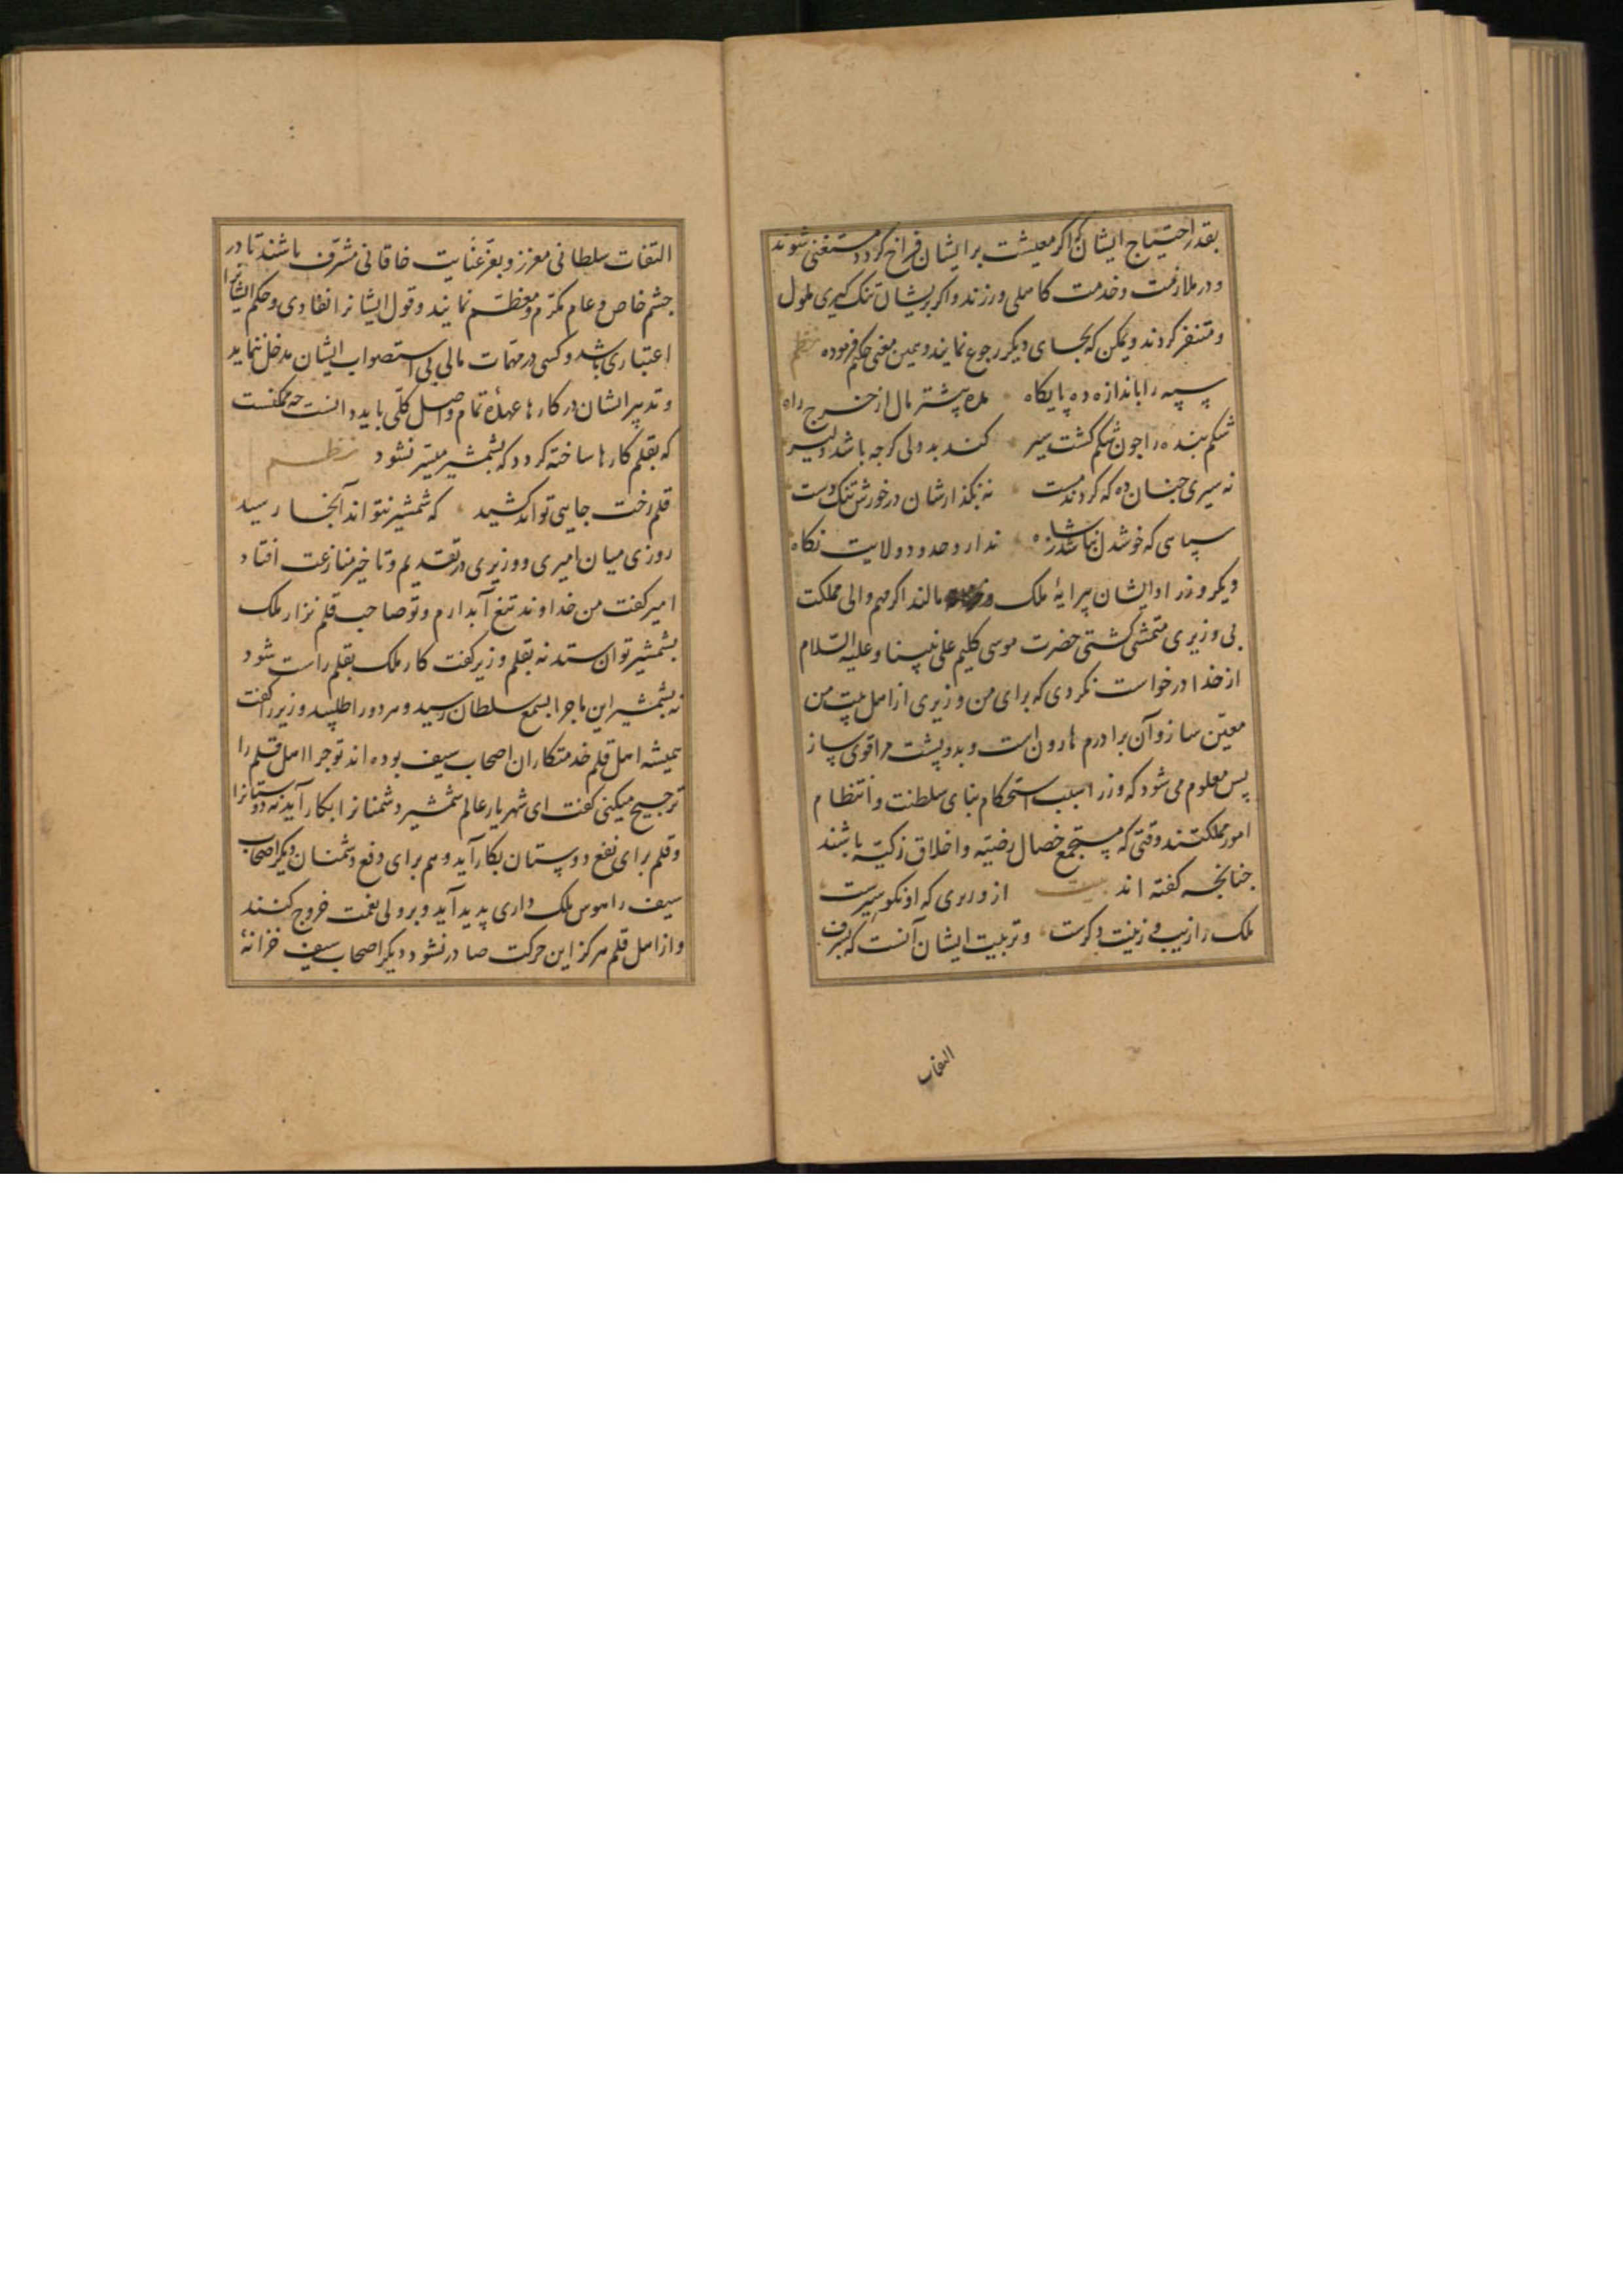 بقدر احتیاج ایشان که اگر معیشت بر ایشان فراخ گردد مستغنی شوند
و در ملازمت و خدمت کاهلی ورزند و اگر بریشان تنک گیری ملول
و متنفر گردند و یمکن که بجای دیگر رجوع نمایند و همین معنی حکیم فرموده نظم
سپه را باندازه ده پایگاه مده پیشتر مال از خرج راه
شکم بنده را چون شکم گشت سیر کند بد دلی گرچه باشد دلیر
نه سیری چنان ده که گردند مست نه بگذارشان در خورش تنگ دست
سپاهی که خوشدل نباشد ز شاه ندارد حدود ولایت نگاه
دیگر وزرا و ایشان پیرایهٔ ملک و مالند اگر مهم والی مملکت
بی وزیری متمشی گشتی حضرت موسی کلیم علی نبینا و علیه السلام
از خدا درخواست نکردی که برای من وزیری از اهل بیت من
معین ساز و آن برادرم هارون است و بدو پشت مرا قوی ساز
پس معلوم می شود که وزرا سبب استحکام بنای سلطنت و انتظام
امور مملکتند وقتی که مستجمع خصال رضیه و اخلاق زکیه باشند
چنانچه گفته اند بیت از وزیری که او نکو سیرست
ملک را زیب و زینت دگرست و تربیت ایشان آنست که بشرف
التفات
التفات سلطانی معزز و بعز عنایت خاقانی مشرف باشند تا در
چشم خاص و عام مکرم و معظم نمایند و قول ایشانرا نفاذی و حکم ایشانرا
اعتباری باشد و کسی در مهمات مالی بی استصواب ایشان مدخل ننماید
و تدبیر ایشان در کارها عهدهٔ تمام و اصل کلی باید دانست چه ممکنست
که بقلم کارها ساخته گردد که بشمشیر میسر نشود نظم
قلم رخت جایی تواند کشید که شمشیر نتواند آنجا رسید
روزی میان امیری و وزیری در تقدیم و تاخیر منازعت افتاد
امیر گفت من خداوند تیغ آبدارم و تو صاحب قلم نزار ملک
بشمشیر توان ستد نه بقلم وزیر گفت کار ملک بقلم راست شود
نه بشمشیر این ماجرا بسمع سلطان رسید و هر دو را طلبید وزیر را گفت
همیشه اهل قلم خدمتکاران اصحاب سیف بوده اند تو چرا اهل قلم را
ترجیح میکنی گفت ای شهریار عالم شمشیر دشمنانرا بکار آید نه دوستانرا
و قلم برای نفع دوستان بکار آید و هم برای دفع دشمنان دیگر اصحاب
سیف را هوس ملک داری پدید آید و بر ولی نعمت خروج کنند
و از اهل قلم هرگز این حرکت صادر نشود دیگر اصحاب سیف خزانهٔ